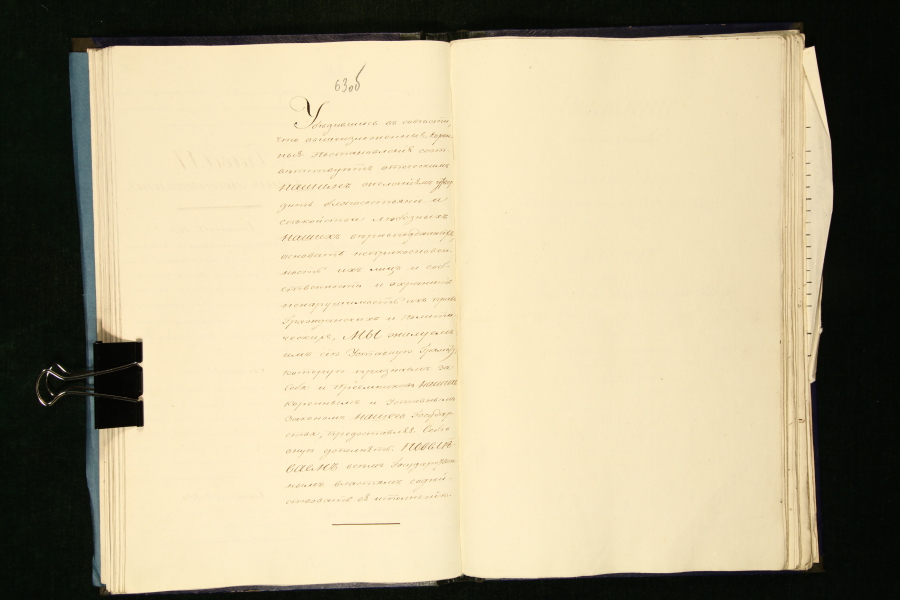 63 об
Убѣдившись въ совѣсти,
что вышеизложенныя корен-
ныя Постановленія соот-
вѣтствуютъ отеческимъ
НАШИМЪ желаніямъ утвер
дить благосостояніе и
спокойствіе любезныхъ
НАШИХЪ вѣрноподданныхъ,
основать неприкосновен-
ность ихъ лицъ и соб-
ственности и охранить
ненарушимость ихъ правъ
Гражданскихъ и Полити-
ческихъ, МЫ жалуемъ
имъ сію Уставную Грамоту,
которую признаемъ за
Себя и Преемниковъ НАШИХЪ
кореннымъ и Уставнымъ
Закономъ НАШЕГО Государ
ства, предоставляя Себѣ
оную дополнять. ПОВЕЛѢ
ВАЕМЪ всѣмъ Государствен
нымъ властямъ содѣй-
ствовать въ исполненіи.